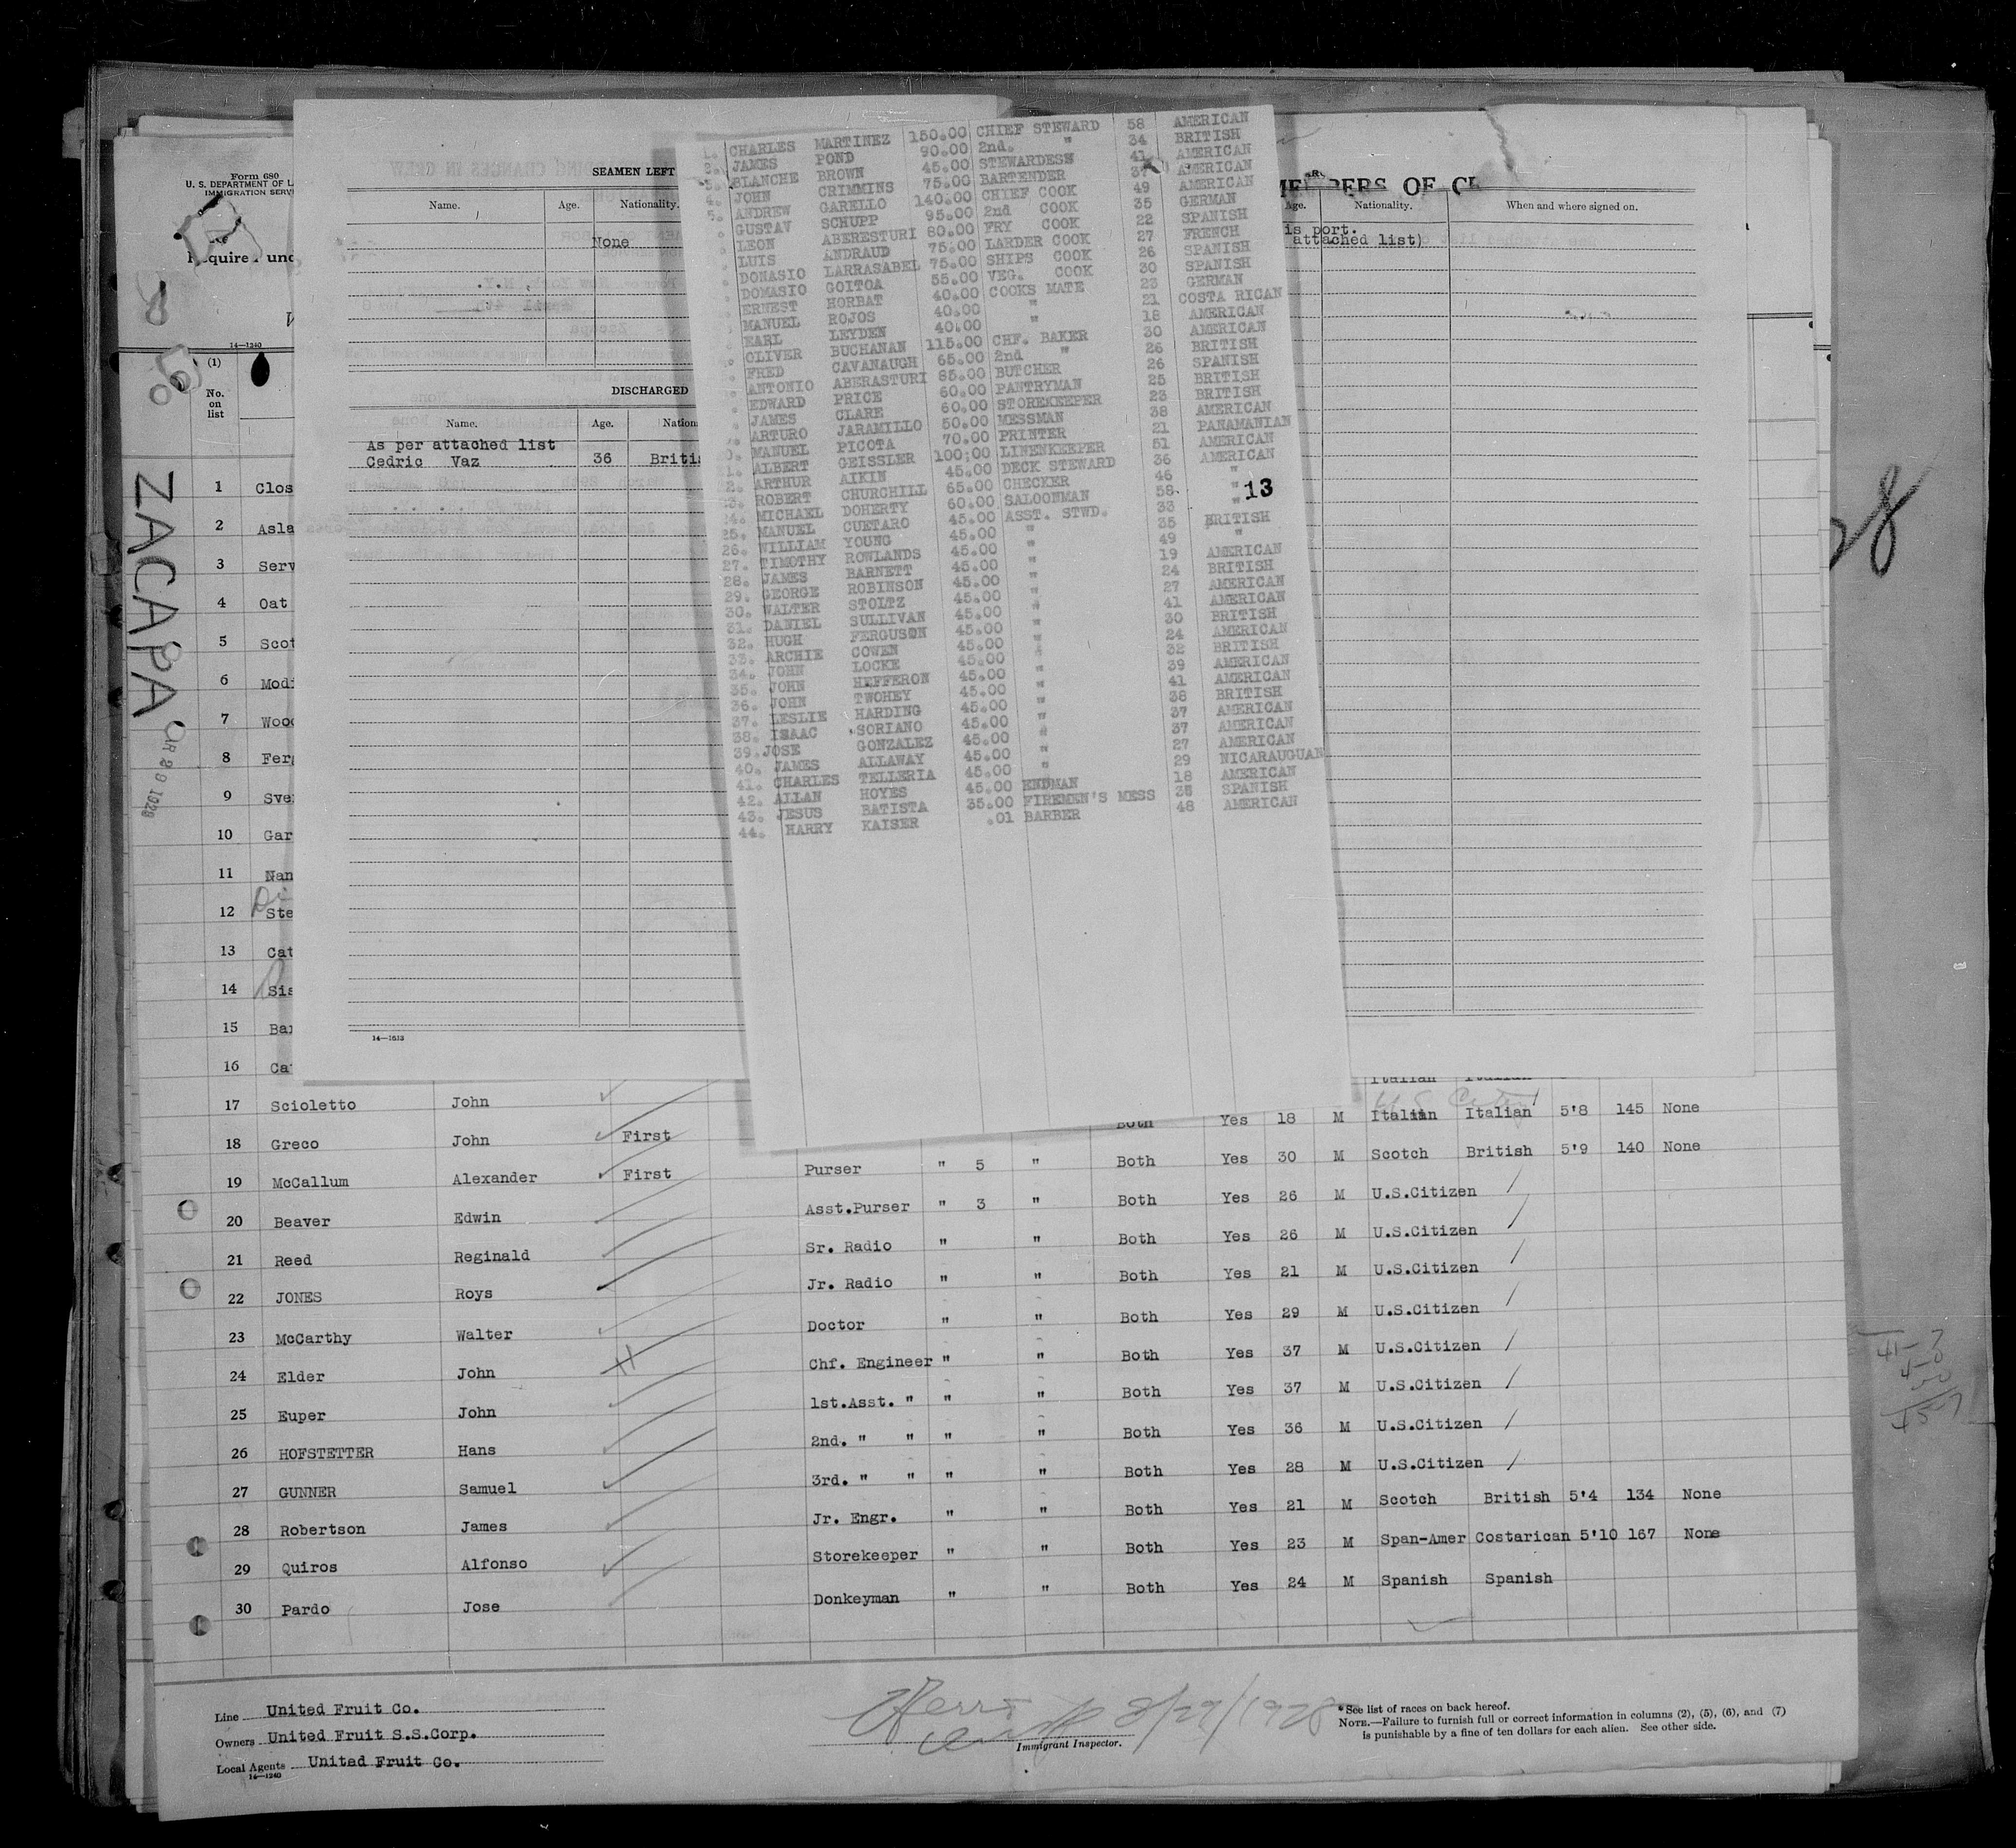 Form 680
U. S. DEPARTMENT OF L
IMMIGRATION SERV
14—1240
(1)
No.
on
list
ZACAPA
SEAMEN LEFT
Name. Age. Nationality.
None
DISCHARGED
Name. Age. Nation
As per attached list
Cedric Vaz 36 Britis
14—1613
1. CHARLES MARTINEZ 150.00 CHIEF STEWARD 58 AMERICAN
2. JAMES POND 90.00 2nd. " 34 BRITISH
3. BLANCHE BROWN 45.00 STEWARDESS 41 AMERICAN
4. JOHN CRIMMINS 75.00 BARTENDER 37 AMERICAN
5. ANDREW GARELLO 140.00 CHIEF COOK 49 AMERICAN
GUSTAV SCHUPP 95.00 2nd COOK 35 GERMAN
LEON ABERESTURI 80.00 FRY COOK 22 SPANISH
LUIS ANDRAUD 75.00 LARDER COOK 27 FRENCH
DONASIO LARRASABEL 75.00 SHIPS COOK 26 SPANISH
DOMASIO GOITOA 55.00 VEG. COOK 30 SPANISH
ERNEST HORBAT 40.00 COOKS MATE 23 GERMAN
MANUEL ROJOS 40.00 " 21 COSTA RICAN
EARL LEYDEN 40.00 " 18 AMERICAN
OLIVER BUCHANAN 115.00 CHF. BAKER 30 AMERICAN
FRED CAVANAUGH 65.00 2nd " 26 BRITISH
ANTONIO ABERASTURI 85.00 BUTCHER 26 SPANISH
EDWARD PRICE 60.00 PANTRYMAN 25 BRITISH
JAMES CLARE 60.00 STOREKEEPER 23 BRITISH
ARTURO JARAMILLO 50.00 MESSMAN 38 AMERICAN
MANUEL PICOTA 70.00 PRINTER 21 PANAMANIAN
ALBERT GEISSLER 100;00 LINENKEEPER 51 AMERICAN
ARTHUR AIKIN 45.00 DECK STEWARD 36 AMERICAN
ROBERT CHURCHILL 65.00 CHECKER 46 "
MICHAEL DOHERTY 60.00 SALOONMAN 58 " 13
25. MANUEL CUETARO 45.00 ASST. STWD. 33 "
26. WILLIAM YOUNG 45.00 " 35 BRITISH
27. TIMOTHY ROWLANDS 45.00 " 49 "
28. JAMES BARNETT 45.00 " 19 AMERICAN
29. GEORGE ROBINSON 45.00 " 24 BRITISH
30. WALTER STOLTZ 45.00 " 27 AMERICAN
31. DANIEL SULLIVAN 45.00 " 41 AMERICAN
32. HUGH FERGUSON 45.00 " 30 BRITISH
33. ARCHIE COWEN 45.00 " 24 AMERICAN
34. JOHN LOCKE 45.00 " 32 BRITISH
35. JOHN HEFFERON 45.00 " 39 AMERICAN
36. JOHN TWOHEY 45.00 " 41 AMERICAN
37. LESLIE HARDING 45.00 " 38 BRITISH
38. ISAAC SORIANO 45.00 " 37 AMERICAN
39. JOSE GONZALEZ 45.00 " 37 AMERICAN
40. JAMES ALLAWAY 45.00 " 27 AMERICAN
41. CHARLES TELLERIA 45.00 " 29 NICARAUGUAN
42. ALLAN HOYES 45.00 ENDMAN 18 AMERICAN
43. JESUS BATISTA 35.00 FIREMEN'S MESS 35 SPANISH
44. HARRY KAISER .01 BARBER 48 AMERICAN
Age. Nationality. When and where signed on.
is port.
attached list)
28
1 Clos
2 Asla
3 Serv
4 Oat
5 Scot
6 Modi
7 Wood
8 Ferg
9 Sve
10 Gar
11 Nan
12 Ste
13 Cat
14 Sis
15 Bar
16 Ca
Italian Italian
17 Scioletto John
U.S. Citizen
18 Greco John First Both Yes 18 M Italian Italian 5'8 145 None
19 McCallum Alexander First Purser " 5 " Both Yes 30 M Scotch British 5'9 140 None
20 Beaver Edwin Asst.Purser " 3 " Both Yes 26 M U.S.Citizen
21 Reed Reginald Sr. Radio " " Both Yes 26 M U.S.Citizen
22 JONES Roys Jr. Radio " " Both Yes 21 M U.S.Citizen
23 McCarthy Walter Doctor " " Both Yes 29 M U.S.Citizen
24 Elder John Chf. Engineer " " Both Yes 37 M U.S.Citizen
25 Euper John 1st.Asst. " " " Both Yes 37 M U.S.Citizen
26 HOFSTETTER Hans 2nd. " " " " Both Yes 36 M U.S.Citizen
27 GUNNER Samuel 3rd. " " " " Both Yes 28 M U.S.Citizen
28 Robertson James Jr. Engr. " " Both Yes 21 M Scotch British 5'4 134 None
29 Quiros Alfonso Storekeeper " " Both Yes 23 M Span-Amer Costarican 5'10 167 None
30 Pardo Jose Donkeyman " " Both Yes 24 M Spanish Spanish
Line United Fruit Co.
Owners United Fruit S.S.Corp.
Local Agents United Fruit Co.
14—1240
3/29/1928
Immigrant Inspector.
*See list of races on back hereof.
NOTE.—Failure to furnish full or correct information in columns (2), (5), (6), and (7)
is punishable by a fine of ten dollars for each alien. See other side.